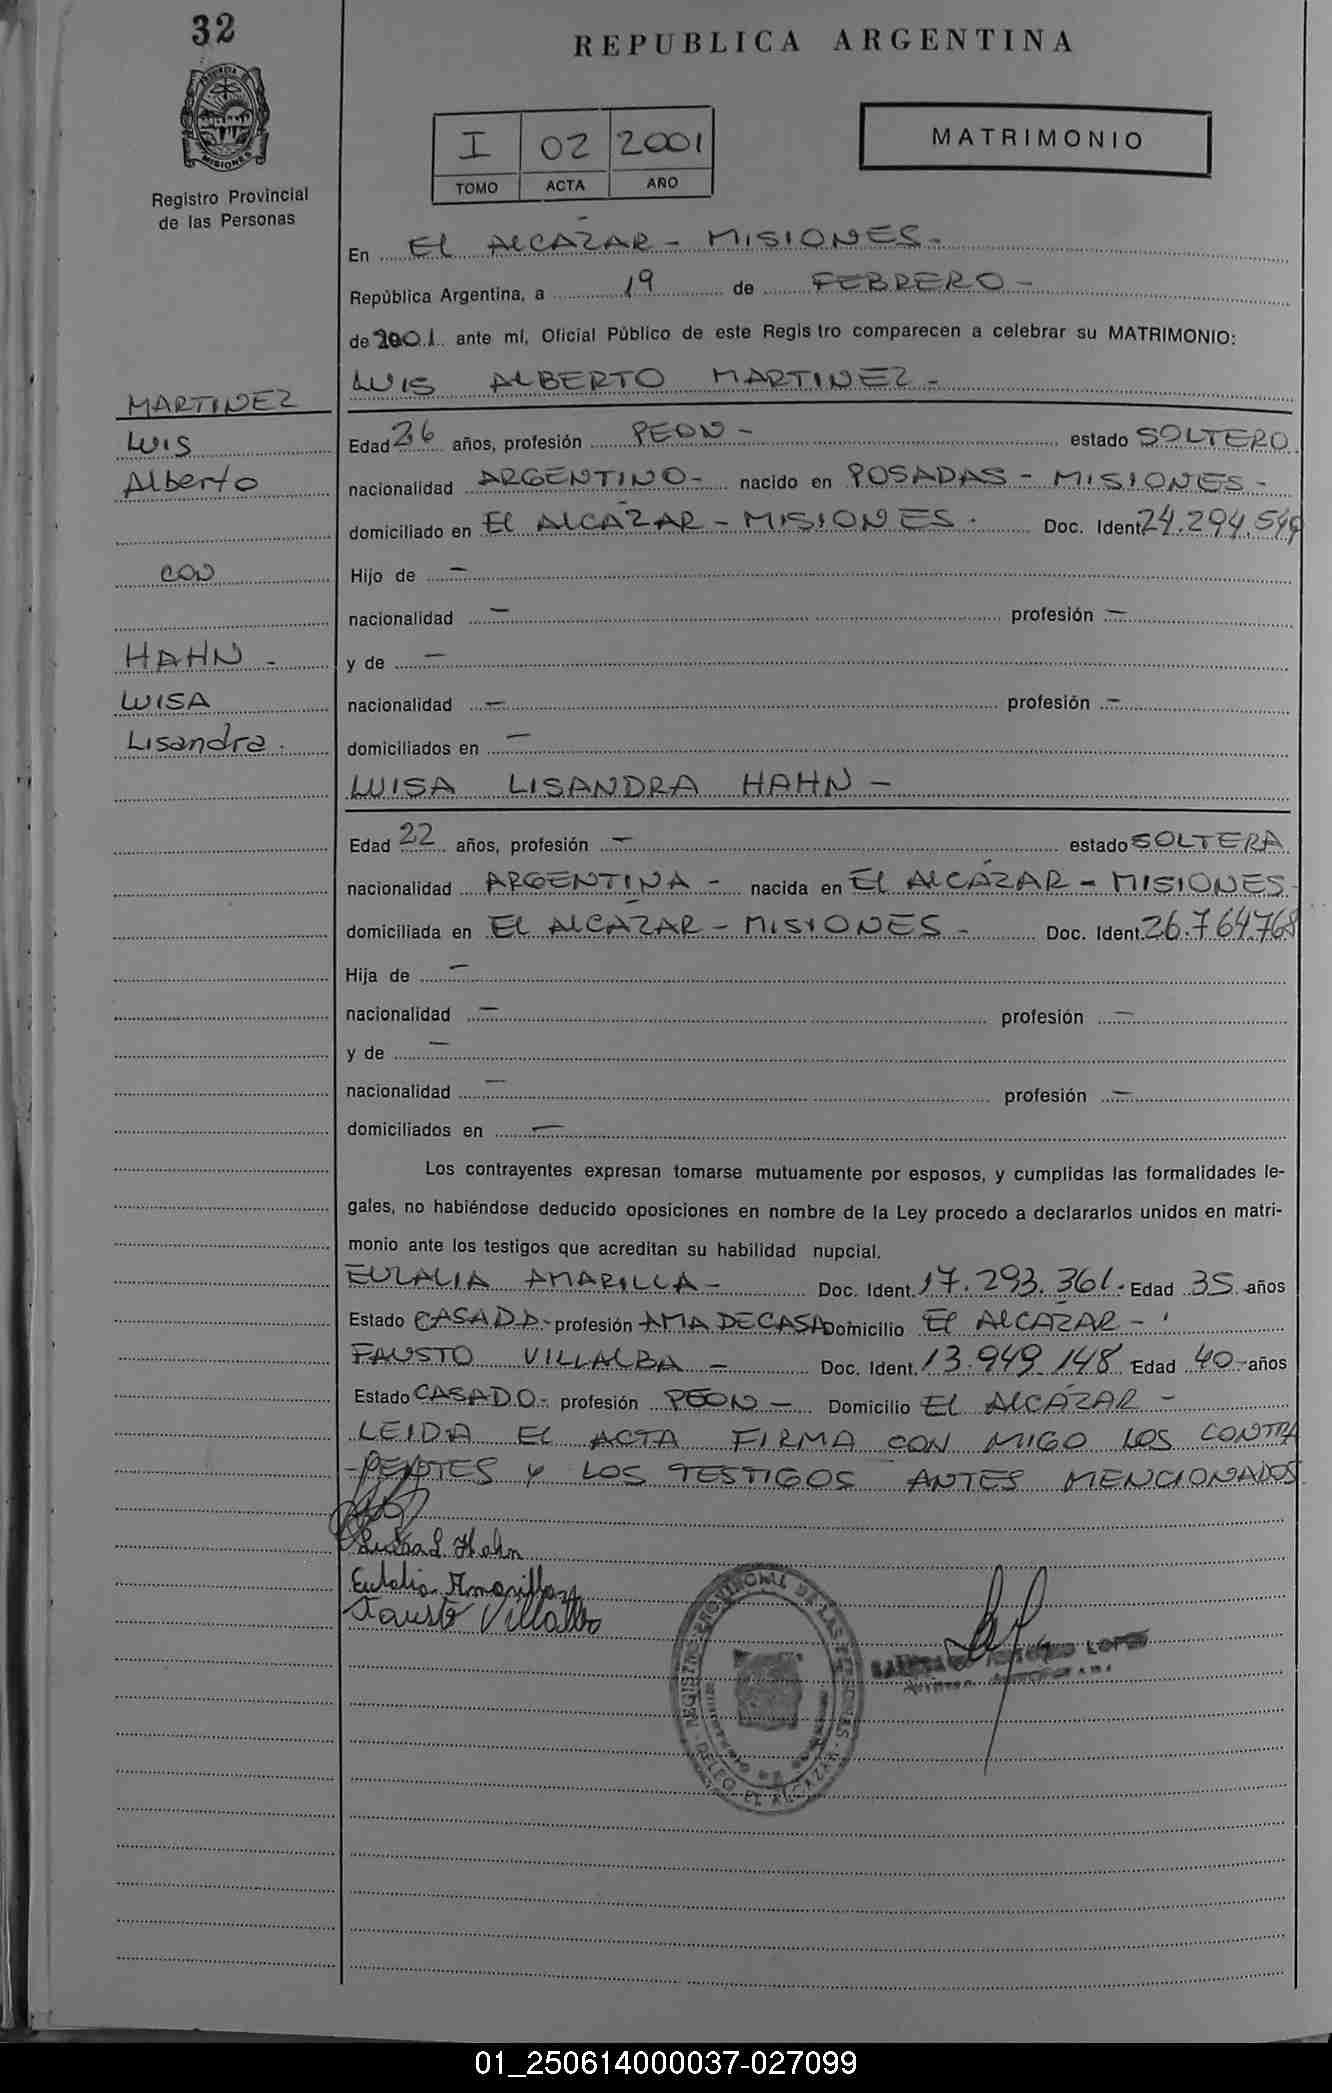 32
REPUBLICA ARGENTINA
PROVINCIA DE
MISIONES
Registro Provincial
de las Personas
I 02 2001
TOMO ACTA AÑO
MATRIMONIO
En EL ALCÁZAR - MISIONES -
República Argentina, a 19 de FEBRERO -
de 2001 ante mí, Oficial Público de este Regis tro comparecen a celebrar su MATRIMONIO:
LUIS ALBERTO MARTINEZ -
MARTINEZ
LUIS
Edad 26 años, profesión PEON - estado SOLTERO
Alberto
nacionalidad ARGENTINO - nacido en POSADAS - MISIONES -
domiciliado en EL ALCÁZAR - MISIONES. Doc. Ident. 24.294.549
CON
Hijo de -
nacionalidad - profesión -
HAHN -
y de -
LUISA
nacionalidad - profesión -
Lisandra.
domiciliados en -
LUISA LISANDRA HAHN -
Edad 22 años, profesión - estado SOLTERA
nacionalidad ARGENTINA - nacida en EL ALCÁZAR - MISIONES -
domiciliada en EL ALCÁZAR - MISIONES - Doc. Ident. 26.764.768
Hija de -
nacionalidad - profesión -
y de -
nacionalidad - profesión -
domiciliados en -
Los contrayentes expresan tomarse mutuamente por esposos, y cumplidas las formalidades le-
gales, no habiéndose deducido oposiciones en nombre de la Ley procedo a declararlos unidos en matri-
monio ante los testigos que acreditan su habilidad nupcial.
EULALIA AMARILLA - Doc. Ident. 17.293.361. Edad 35 años
Estado CASADA - profesión AMA DE CASA Domicilio EL ALCAZAR -
FAUSTO VILLALBA - Doc. Ident. 13.949.148 Edad 40 - años
Estado CASADO - profesión PEON - Domicilio EL ALCÁZAR -
LEIDA EL ACTA FIRMA CON MIGO LOS CONTRA
-YENTES Y LOS TESTIGOS ANTES MENCIONADOS
Luisa L Hahn
Eulalia Amarilla
Fausto Villalba
REGISTRO PROVINCIAL DE LAS PERSONAS
DELEG. EL ALCAZAR
LOPEZ
01_250614000037-027099